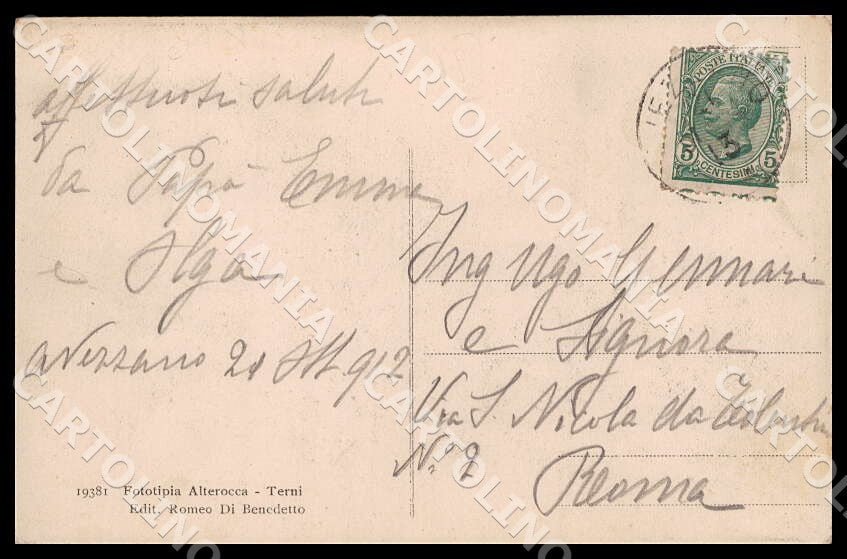 affettuosi saluti
da Papà Emma
e Olga
Avezzano 20 Ott 912
19381 Fototipia Alterocca - Terni
Edit. Romeo Di Benedetto
POSTE ITALIANE
5 5
CENTESIMI
Ing Ugo Gennari
e Signora
Via S. Nicola da Tolentino
N.º 2
Roma
CARTOLINOMANIA